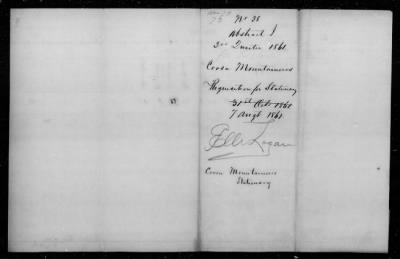 No 38
Abstract I
3rd Quarter 1861
Coosa Mountaineers
Requisition for Stationery
31st Octr 1861
7 Augt 1861
Logan
Coosa Mountaineers
Stationery